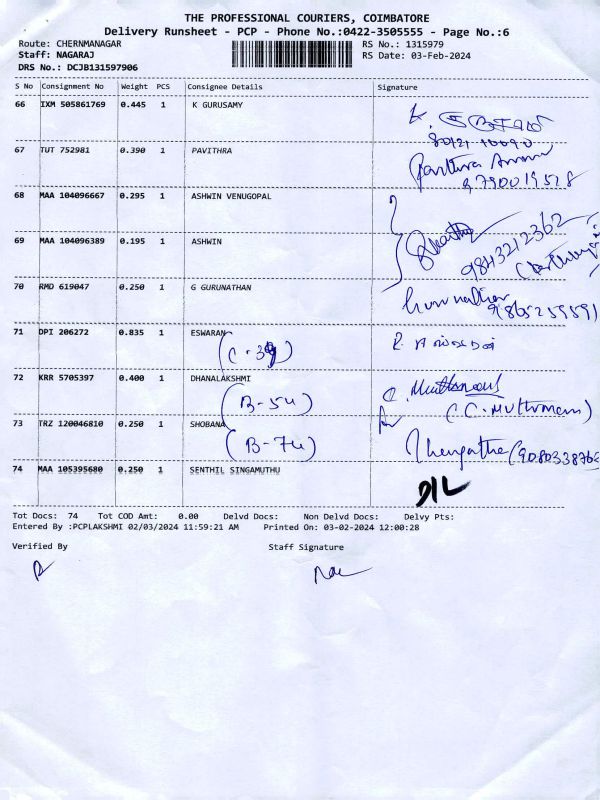 THE PROFESSIONAL COURIERS, COIMBATORE
Delivery Runsheet - PCP - Phone No.:0422-3505555 - Page No.:6
Route: CHERNMANAGAR RS No.: 1315979
Staff: NAGARAJ RS Date: 03-Feb-2024
DRS No.: DCJB131597906
S No Consignment No Weight PCS Consignee Details Signature
66 IXM 505861769 0.445 1 K GURUSAMY
67 TUT 752981 0.390 1 PAVITHRA
9790019528
68 MAA 104096667 0.295 1 ASHWIN VENUGOPAL
9843212362
69 MAA 104096389 0.195 1 ASHWIN
70 RMD 619047 0.250 1 G GURUNATHAN
71 DPI 206272 0.835 1 ESWARAN
72 KRR 5705397 0.400 1 DHANALAKSHMI
(B-54)
73 TRZ 120046810 0.250 1 SHOBANA
(B-74)
74 MAA 105395680 0.250 1 SENTHIL SINGAMUTHU
D/L
Tot Docs: 74 Tot COD Amt: 0.00 Delvd Docs: Non Delvd Docs: Delvy Pts:
Entered By :PCPLAKSHMI 02/03/2024 11:59:21 AM Printed On: 03-02-2024 12:00:28
Verified By Staff Signature